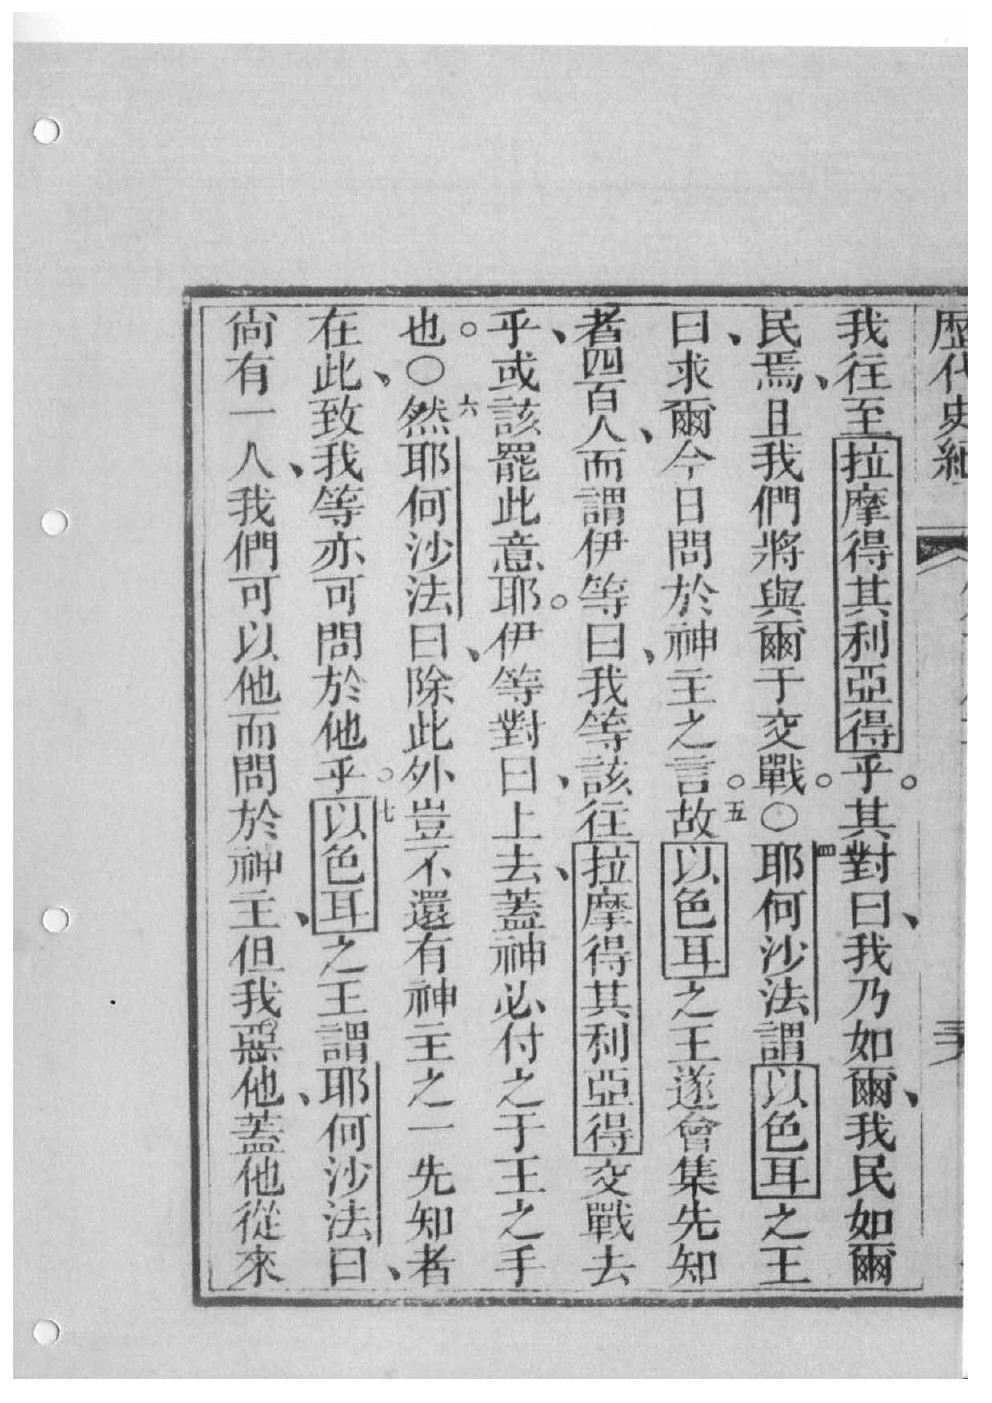 歷代史紀
我往至拉摩得其利亞得乎。其對曰、我乃如爾、我民如爾
民焉、且我們將與爾于交戰。〇四耶何沙法謂以色耳之王
曰、求爾今日問於神主之言。五故以色耳之王遂會集先知
者四百人、而謂伊等曰、我等該往拉摩得其利亞得交戰去
乎、或該罷此意耶。伊等對曰、上去、蓋神必付之于王之手
也。〇六然耶何沙法曰、除此外豈不還有神主之一先知者
在此、致我等亦可問於他乎。七以色耳之王謂耶何沙法曰、
尙有一人、我們可以他而問於神主、但我惡他、蓋他從來